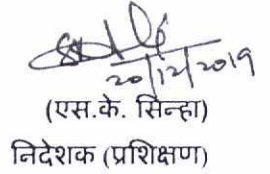 20/12/2019
(एस.के. सिन्हा)
निदेशक (प्रशिक्षण)